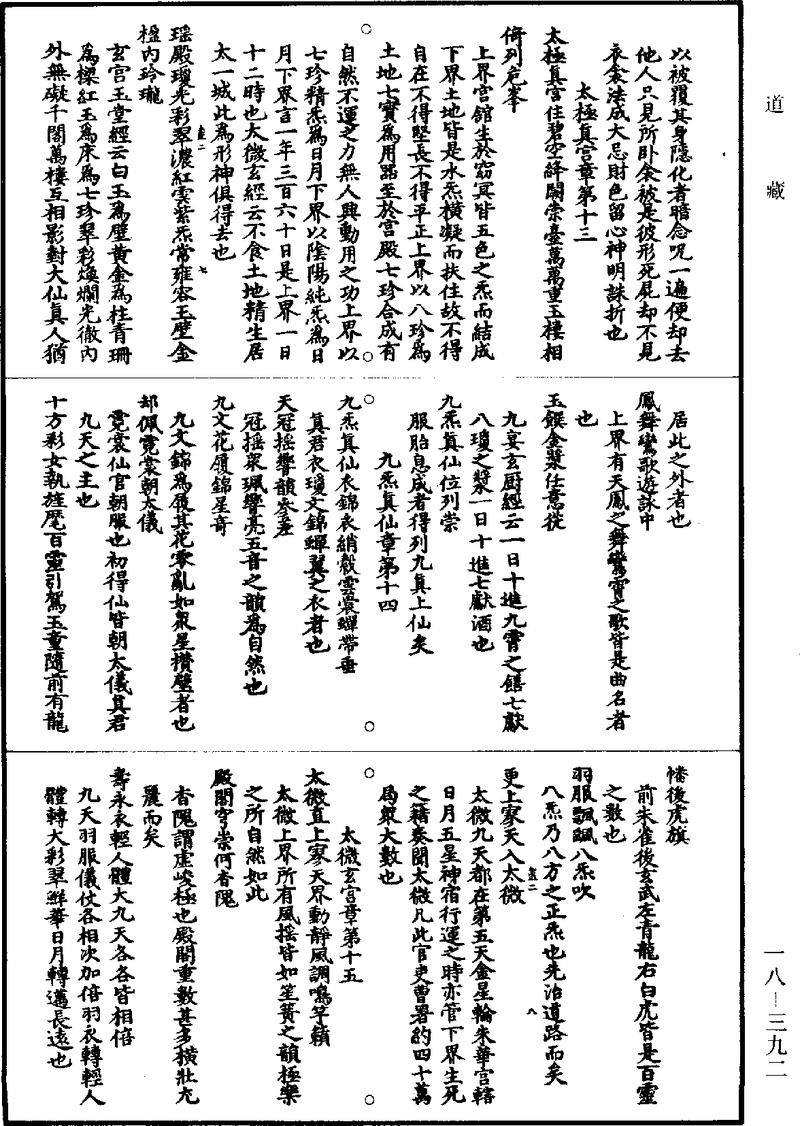 道藏
以被覆其身隱化者暗念呪一遍便却去
他人只見所卧衾被是彼形死屍却不見
衣衾法成大忌財色留心神明誅折也
太極真宮章第十三
太極真宮住碧空絳闕崇臺萬萬重玉樓相
倚列危峯
上界宮館生於窈冥皆五色之炁而結成
下界土地皆是水炁橫凝而扶住故不得
自在不得堅長不得平正上界以八珍爲
土地七寶爲用器至於宮殿七珍合成有
自然不運之力無人興動用之功上界以
七珍精炁爲日月下界以陰陽純炁爲日
月下界言一年三百六十日是上界一日
十二時也太微玄經云不食土地精生居
太一城此爲形神俱得去也
瑶殿瓊光彩翠濃紅雲紫炁常雍容玉壁金
楹内玲瓏
玄宮玉堂經云白玉爲壁黃金爲柱青珊
爲樑紅玉爲床爲七珍翠彩煥爛光徹內
外無礙千閣萬樓互相影對大仙真人猶
居此之外者也
鳳舞鸞歌遊詠中
上界有天鳳之舞鸞霄之歌皆是曲名者
也
玉饌金漿任意從
九宴玄厨經云一日十進九霄之饍七獻
八瓊之漿一日十進七獻酒也
九炁真仙位列崇
服胎息成者得列九真上仙矣
九炁真仙章第十四
九炁真仙衣錦衣綃縠雲裳蟬帶垂
真君衣瓊文錦蟬翼之衣者也
天冠摇響韻參差
冠摇衆珮響亮五音之韻爲自然也
九文花履錦星奇
九文錦爲履其花零亂如衆星攢壁者也
却佩霓裳朝太儀
霓裳仙官朝服也初得仙皆朝太儀真君
九天之主也
十方彩女執旌麾百靈引駕玉童隨前有龍
幡後虎旗
前朱雀後玄武左青龍右白虎皆是百靈
之數也
羽服飄颻八炁吹
八炁乃八方之正炁也先治道路而矣
更上寥天入太微
太微九天都在第五天金星輪朱華宮轄
日月五星神宿行運之時亦管下界生死
之籍奏聞太微凡此官吏曹署約四十萬
爲衆大數也
太微玄宮章第十五
太微直上寥天界動靜風調鳴竽籟
太微上界所有風摇皆如笙簧之韻極樂
之所自然如此
殿閣穹崇何杳隗
杳隗謂虛峻極也殿閣重數甚多橫壯尢
麗而矣
壽永衣輕人體大九天各各皆相倍
九天羽服儀仗各相次加倍羽衣轉輕人
體轉大彩翠鮮華日月轉邁長遠也
一八—三九二